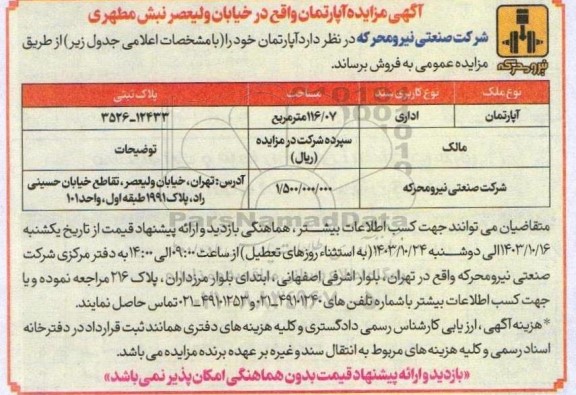 آگهی مزایده آپارتمان واقع در خیابان ولیعصر نبش مطهری
شرکت صنعتی نیرو محرکه در نظر دارد آپارتمان خود را (با مشخصات اعلامی جدول زیر) از طریق
مزایده عمومی به فروش برساند.
نیرو محرکه
نوع ملک نوع کاربری سند مساحت پلاک ثبتی
آپارتمان اداری ۱۱۶/۰۷ مترمربع ۳۵۲۶-۱۲۴۳۳
مالک سپرده شرکت در مزایده (ریال) توضیحات
شرکت صنعتی نیرومحرکه ۱/۵۰۰/۰۰۰/۰۰۰ آدرس: تهران، خیابان ولیعصر، تقاطع خیابان حسینی
راد، پلاک ۱۹۹۱ طبقه اول، واحد ۱۰۱
ParsNamadData
متقاضیان می توانند جهت کسب اطلاعات بیشتر، هماهنگی بازدید و ارائه پیشنهاد قیمت از تاریخ یکشنبه
۱۴۰۳/۱۰/۱۶ الی دوشنبه ۱۴۰۳/۱۰/۲۴ (به استثناء روزهای تعطیل) از ساعت ۰۹:۰۰ الی ۱۴:۰۰ به دفتر مرکزی شرکت
صنعتی نیرومحرکه واقع در تهران، بلوار اشرفی اصفهانی، ابتدای بلوار مرزداران، پلاک ۲۱۶ مراجعه نموده و یا
جهت کسب اطلاعات بیشتر با شماره تلفن های ۴۹۱۰۱۲۴۰-۰۲۱ و ۴۹۱۰۱۲۵۳-۰۲۱ تماس حاصل نمایند.
*هزینه آگهی، ارزیابی کارشناس رسمی دادگستری و کلیه هزینه های دفتری همانند ثبت قرارداد در دفترخانه
اسناد رسمی و کلیه هزینه های مربوط به انتقال سند و غیره بر عهده برنده مزایده می باشد.
«بازدید و ارائه پیشنهاد قیمت بدون هماهنگی امکان پذیر نمی باشد»